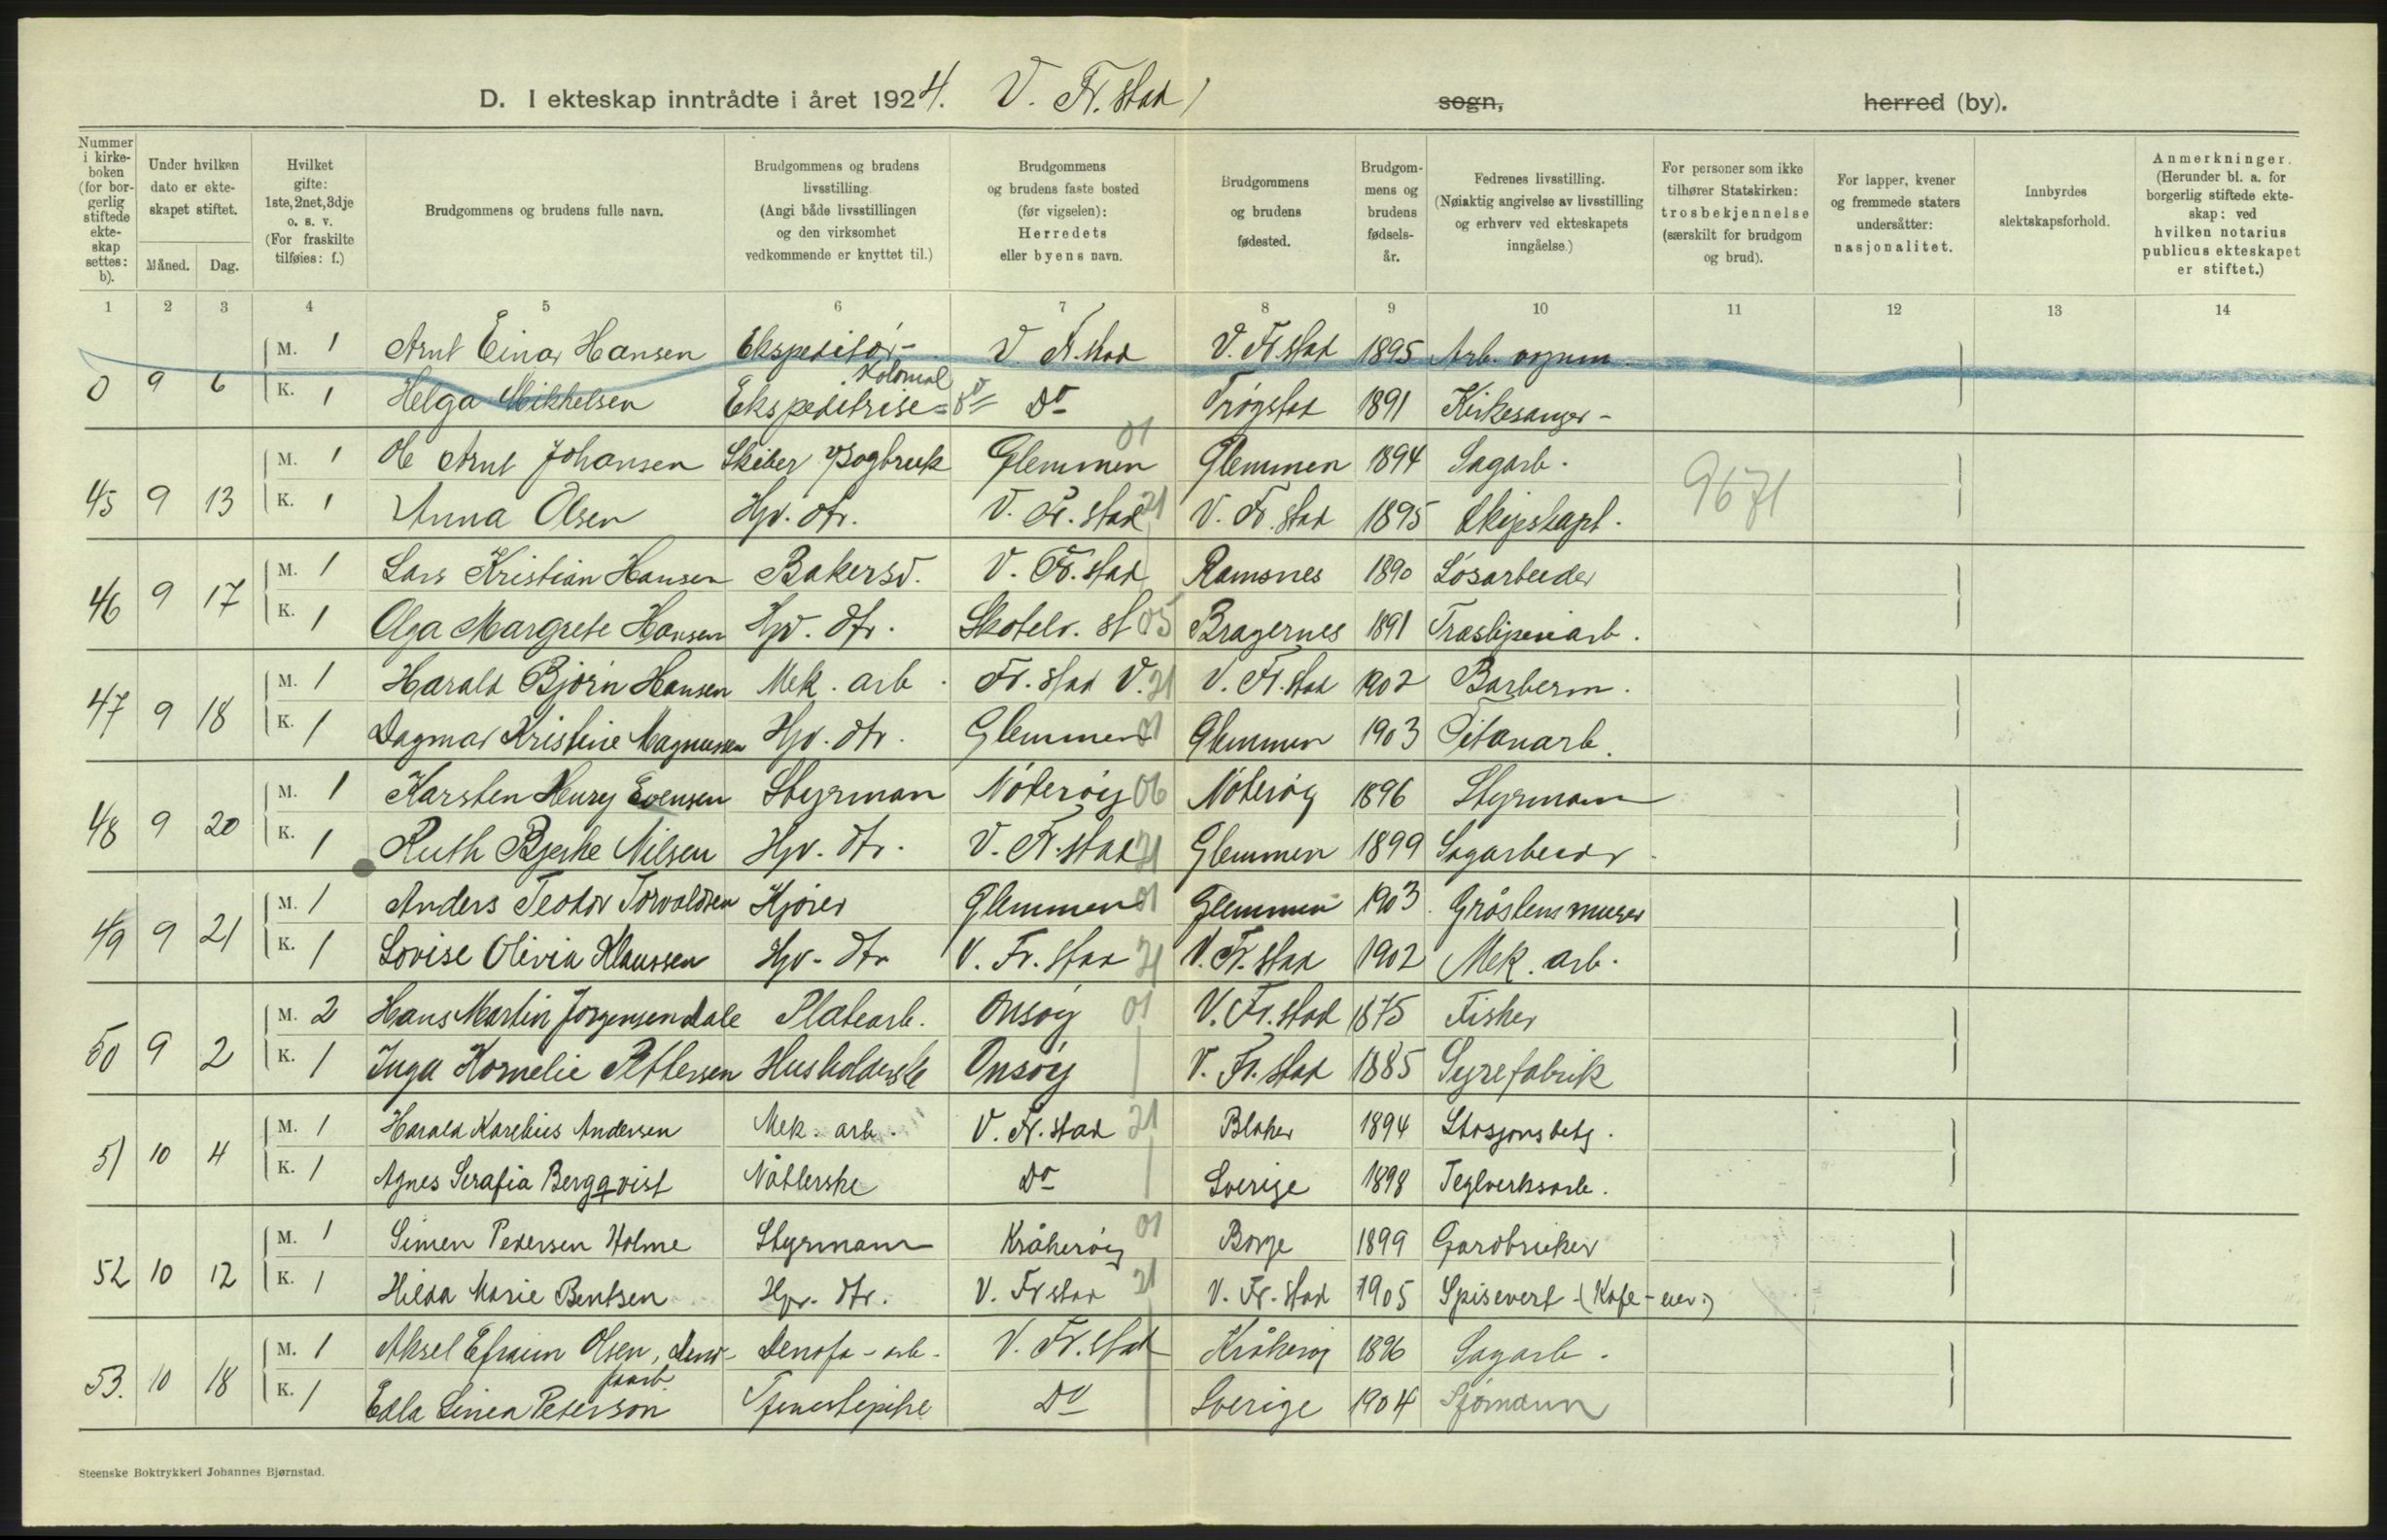 D. I ekteskap inntrådte i året 1924. V. Fr.stad sogn, herred (by).
Nummer i kirkeboken (for borgerlig stiftede ekteskap settes: b).
Under hvilken dato er ekteskapet stiftet.
Måned. Dag.
Hvilket gifte: 1ste, 2net, 3dje o. s. v. (For fraskilte tilføies: f.)
Brudgommens og brudens fulle navn.
Brudgommens og brudens livsstilling. (Angi både livsstillingen og den virksomhet vedkommende er knyttet til.)
Brudgommens og brudens faste bosted (før vigselen): Herredets eller byens navn.
Brudgommens og brudens fødested.
Brudgommens og brudens fødselsår.
Fedrenes livsstilling. (Nøiaktig angivelse av livsstilling og erhverv ved ekteskapets inngåelse.)
For personer som ikke tilhører Statskirken: trosbekjennelse (særskilt for brudgom og brud).
For lapper, kvener og fremmede staters undersåtter: nasjonalitet.
Innbyrdes slektskapsforhold.
Anmerkninger. (Herunder bl. a. for borgerlig stiftede ekteskap: ved hvilken notarius publicus ekteskapet er stiftet.)
1 2 3 4 5 6 7 8 9 10 11 12 13 14
M. 1 Arnt Einar Hansen Ekspeditør- V Fr.stad V. Fr.stad 1895 Arb.
0 9 6 K. 1 Helga Mikkelsen Ekspeditrise Kolonial Do Trøgstad 1891 Kirkesanger -
M. 1 Ole Arnt Johansen Skiber v/Sagbruk Glemmen 01 Glemmen 1894 Sagarb.
45 9 13 K. 1 Anna Olsen Hjv. dtr. V. Fr. stad 21 V. Fr. stad 1895 Skipskapt. 9671
M. 1 Lars Kristian Hansen Bakersv. V. Fr. stad Ramsnes 1890 Løsarbeider
46 9 17 K. 1 Olga Margrete Hansen Hjv. dtr. Skotselv. st 05 Bragernes 1891 Træsliperiarb.
M. 1 Harald Bjørn Hansen Mek. arb. Fr. stad V. 21 V. Fr. stad 1902 Barberm.
47 9 18 K. 1 Dagmar Kristine Magnussen Hjv. dtr. Glemmen 01 Glemmen 1903 Titanarb.
M. 1 Karsten Henry Evensen Styrman Nøterøy 06 Nøterøy 1896 Styrmann
48 9 20 K. 1 Ruth Bjerke Nilsen Hjv. dtr. V. Fr. stad 21 Glemmen 1899 Sagarbeider
M. 1 Anders Teodor Torvaldsen Kjører Glemmen 01 Glemmen 1903 Gråstensmurer
49 9 21 K. 1 Lovise Olivia Klaussen Hjv. dtr V. Fr. stad 21 V. Fr. stad 1902 Mek. arb.
M. 2 Hans Martin Jørgensen dale Platearb. Onsøy 01 V. Fr. stad 1875 Fisker
50 9 2 K. 1 Inga Kornelie Pettersen Husholderske Onsøy V. Fr. stad 1885 Syrefabrik
M. 1 Harald Karelius Andersen Mek. arb. V. Fr. stad 21 Blaker 1894 Stasjonsbetj.
51 10 4 K. 1 Agnes Serafia Bergqvist Nåtlerske Do Sverige 1898 Teglverksarb.
M. 1 Simen Pedersen Holme Styrmann Kråkerøy 01 Borge 1899 Gardbruker
52 10 12 K. 1 Hilda Marie Bentsen Hjv. dtr. V. Fr stad 21 V. Fr. stad 1905 Spisevert (Kafe-eier)
M. 1 Aksel Efraim Olsen, Denofaarb. Denofa-arb. V. Fr. stad Kråkerøy 1896 Sagarb.
53. 10 18 K. 1 Edla Linea Peterson Tjenestepike Do Sverige 1904 Sjømann
Steenske Boktrykkeri Johannes Bjørnstad.